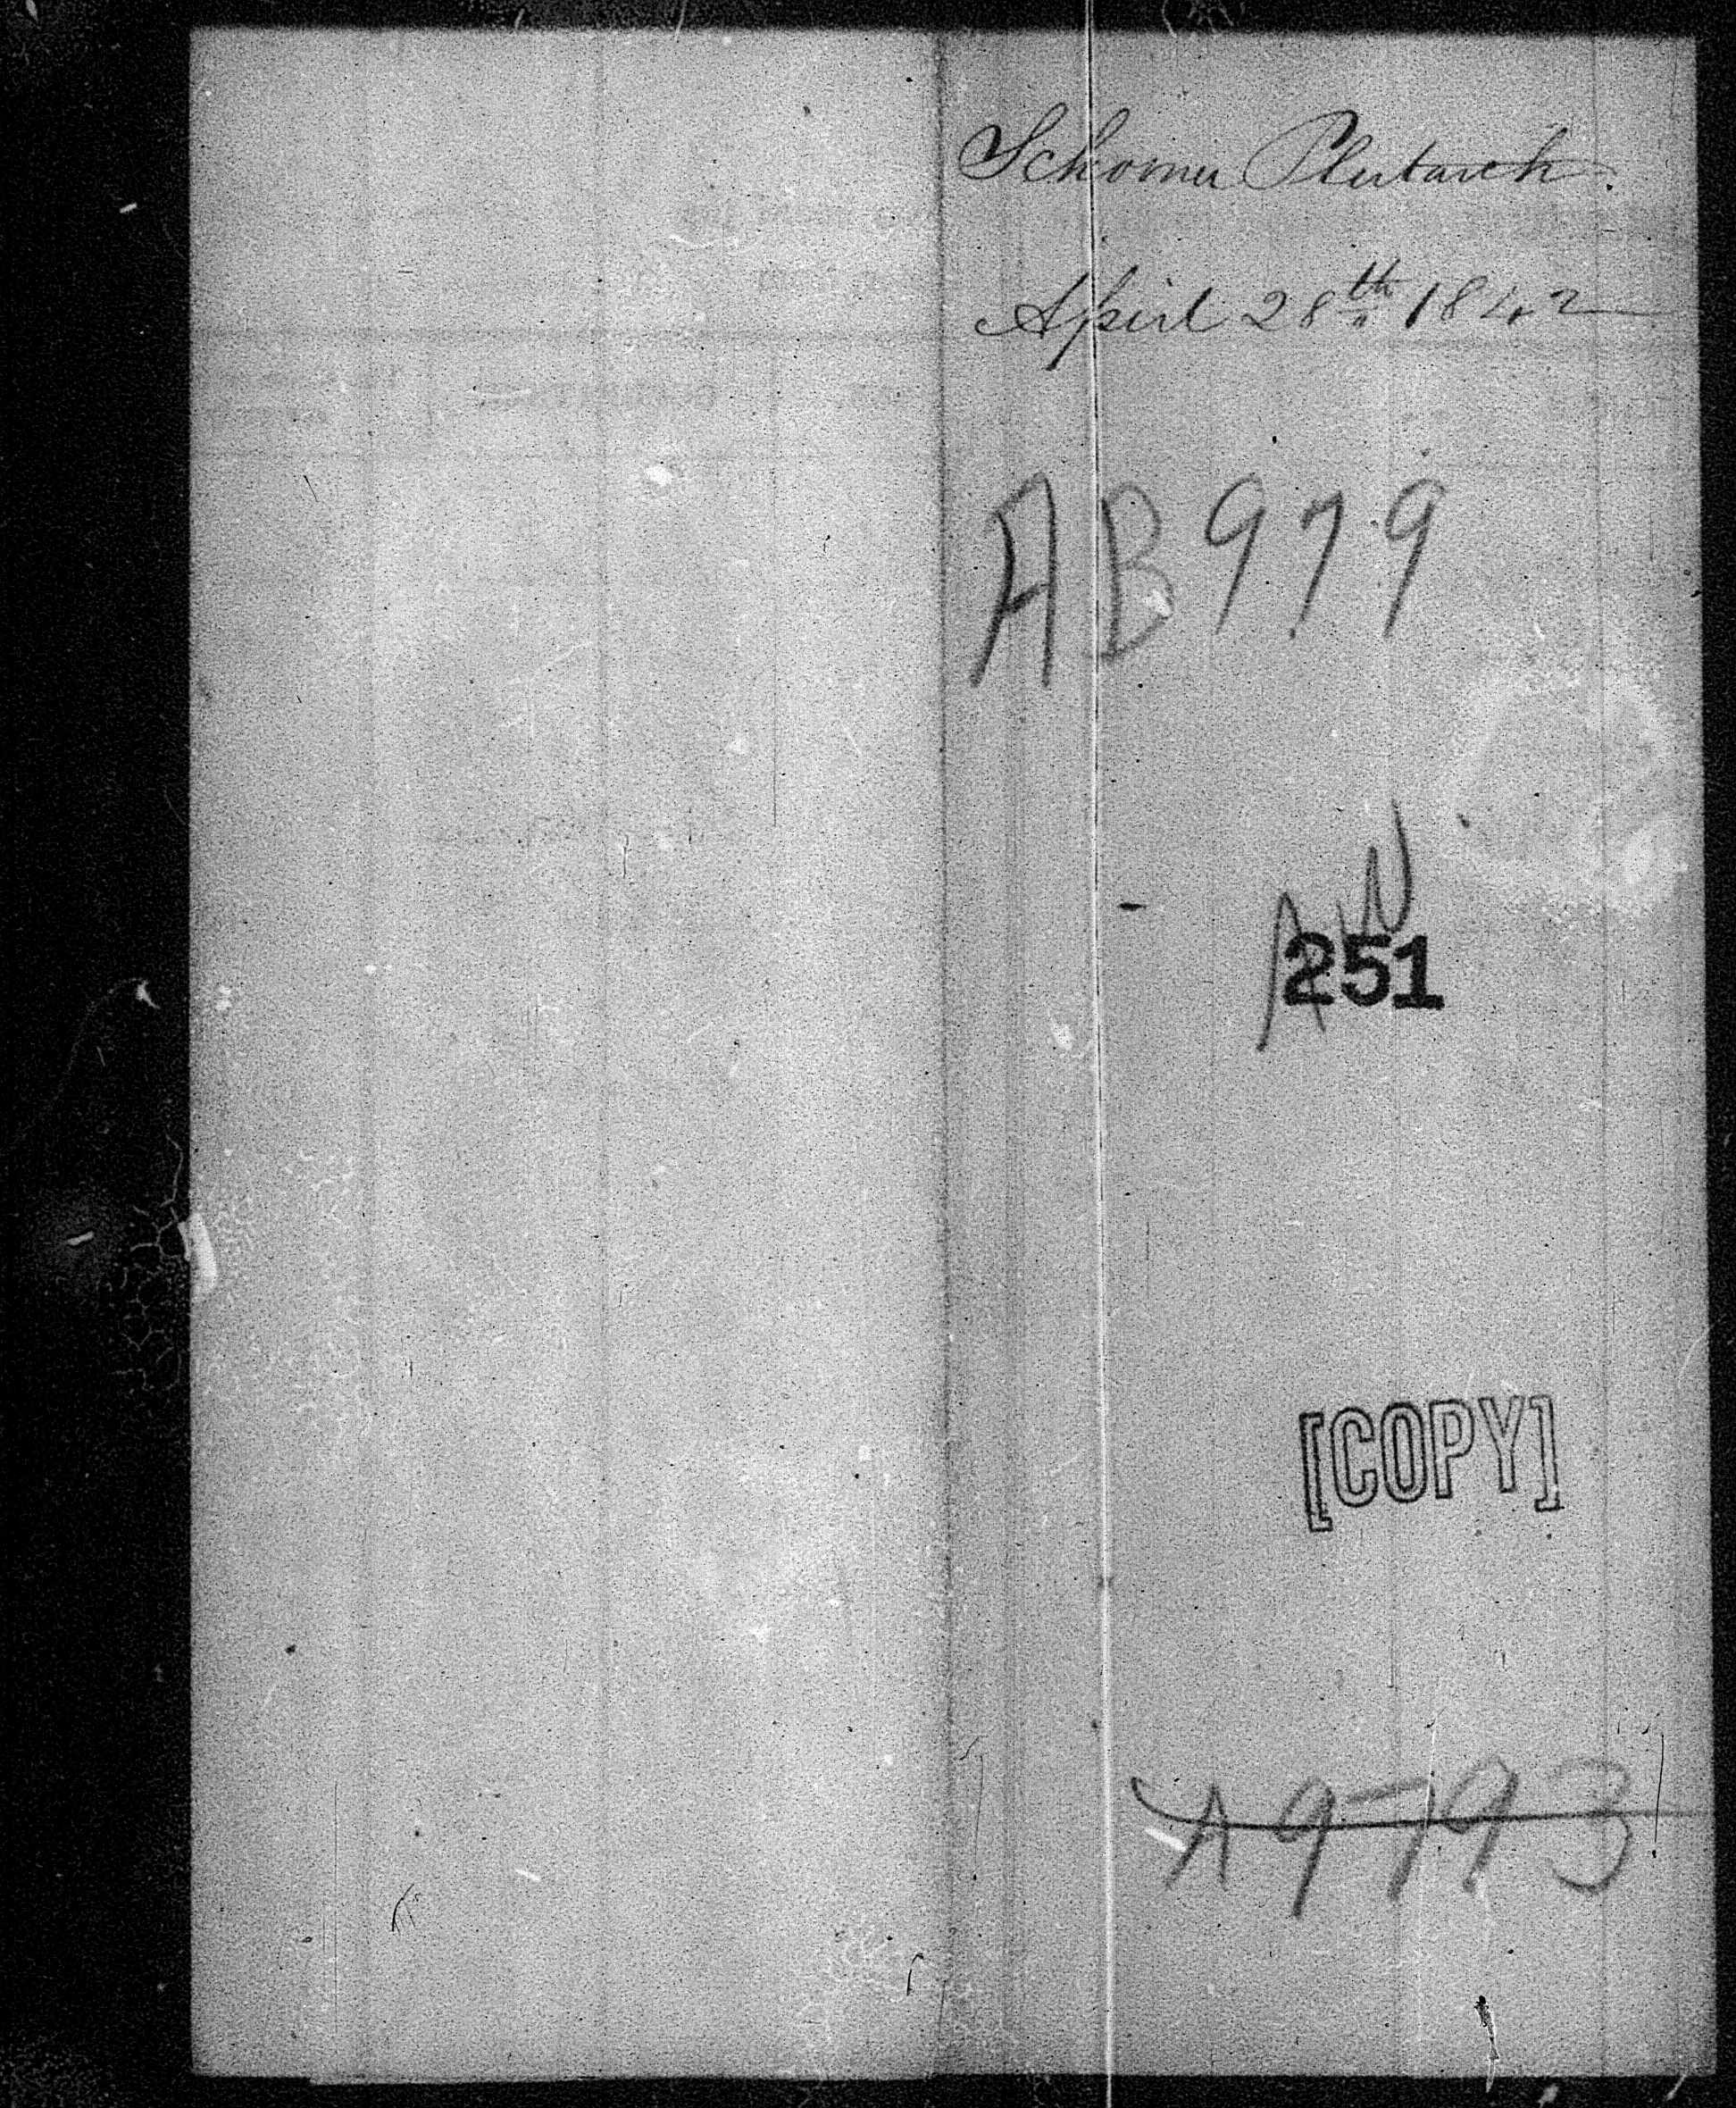 Schooner Plutarch.
April 28th 1842
AB 979
AN
251
[COPY]
A 9793